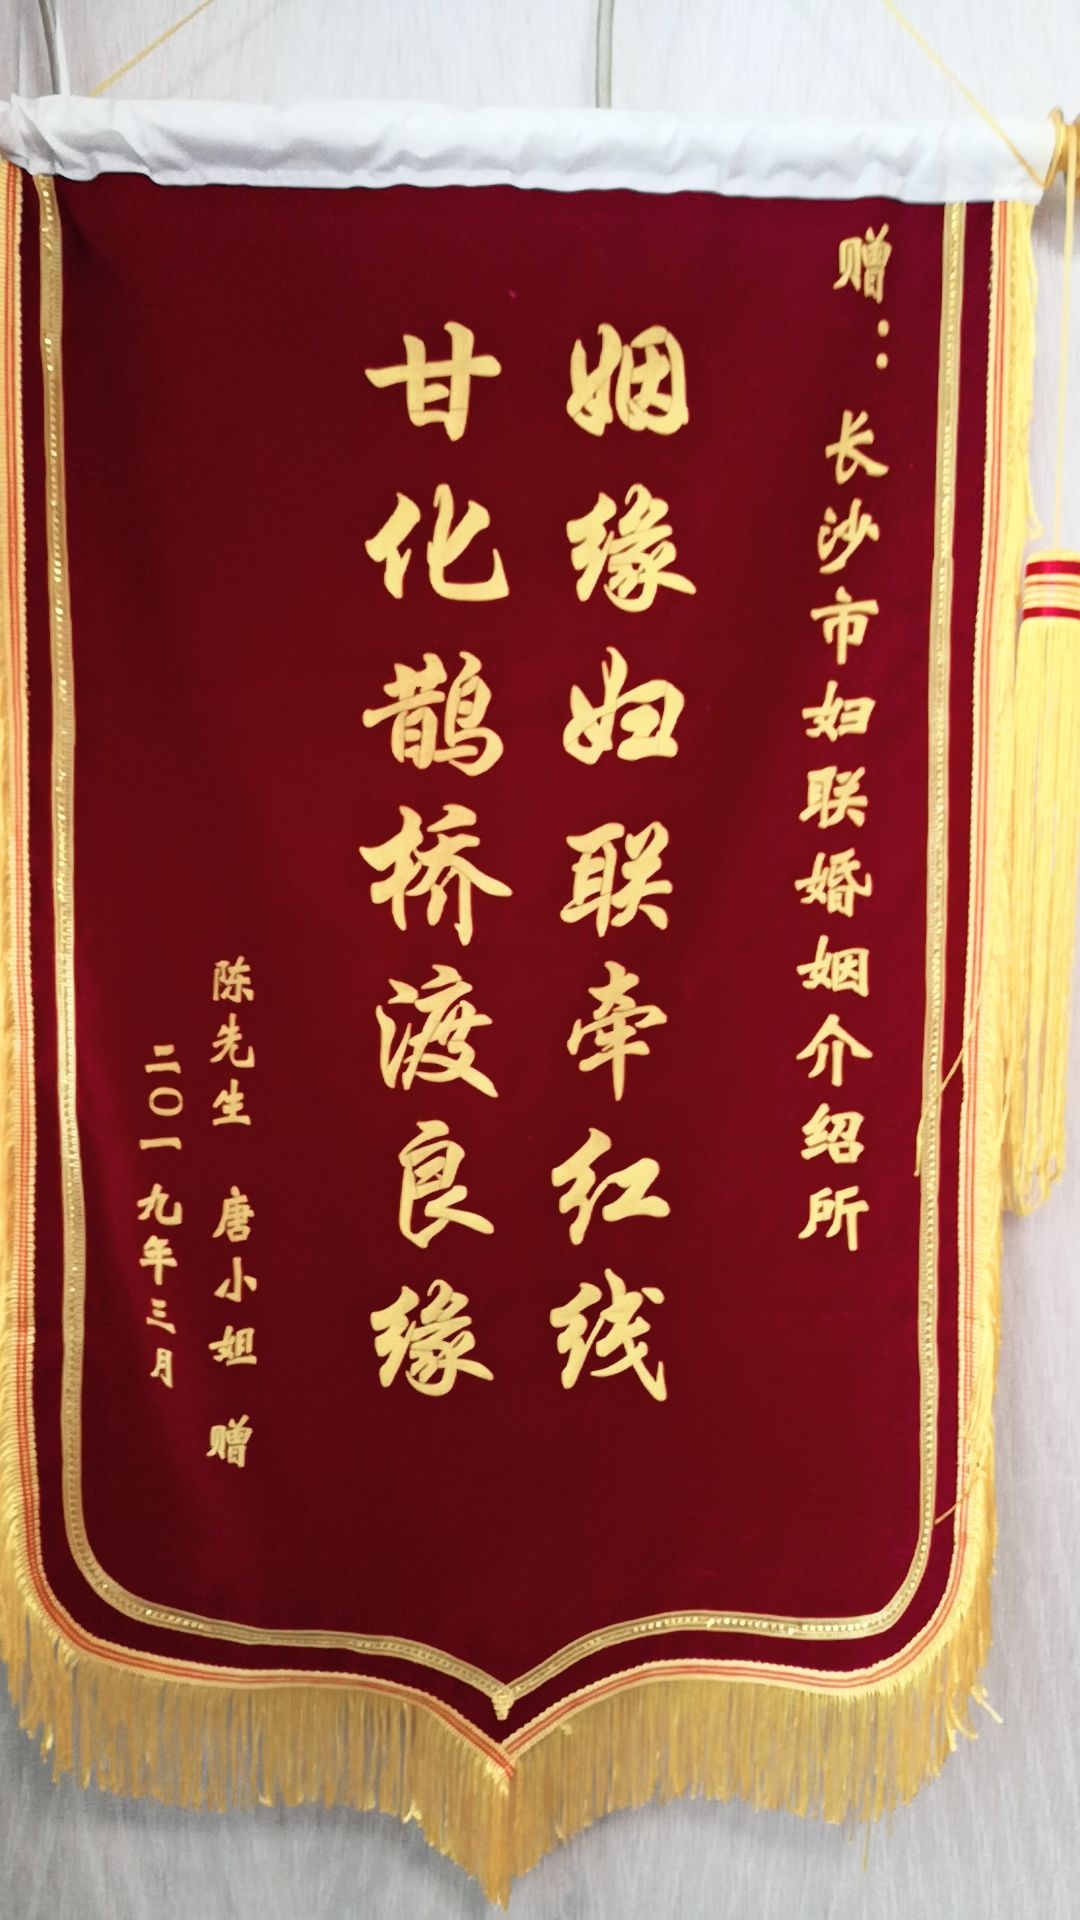 赠：长沙市妇联婚姻介绍所
姻缘妇联牵红线
甘化鹊桥渡良缘
陈先生 唐小姐 赠
二〇一九年三月